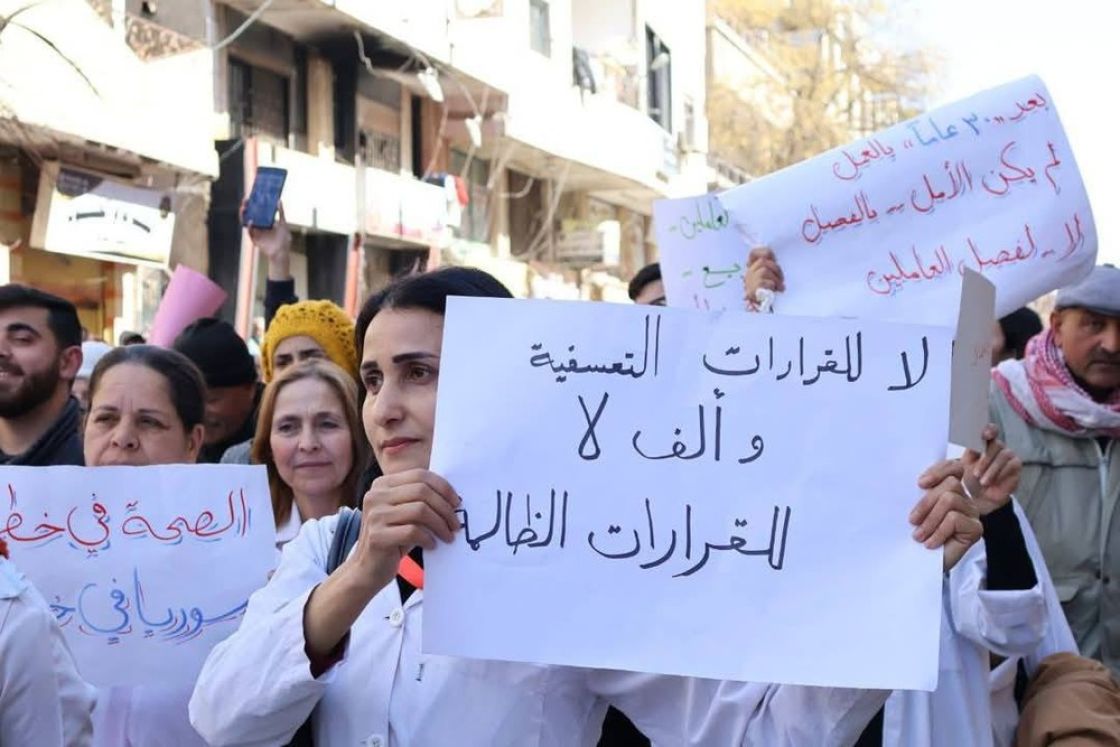 لا للقرارات التعسفية
و ألف لا
للقرارات الظالمة
الصحة في خطر
سوريا في
بعد "٣٠ عاماً" بالعمل
لم يكن الأمل -- بالفصل
لا -- لفصل العاملين
للعاملين -